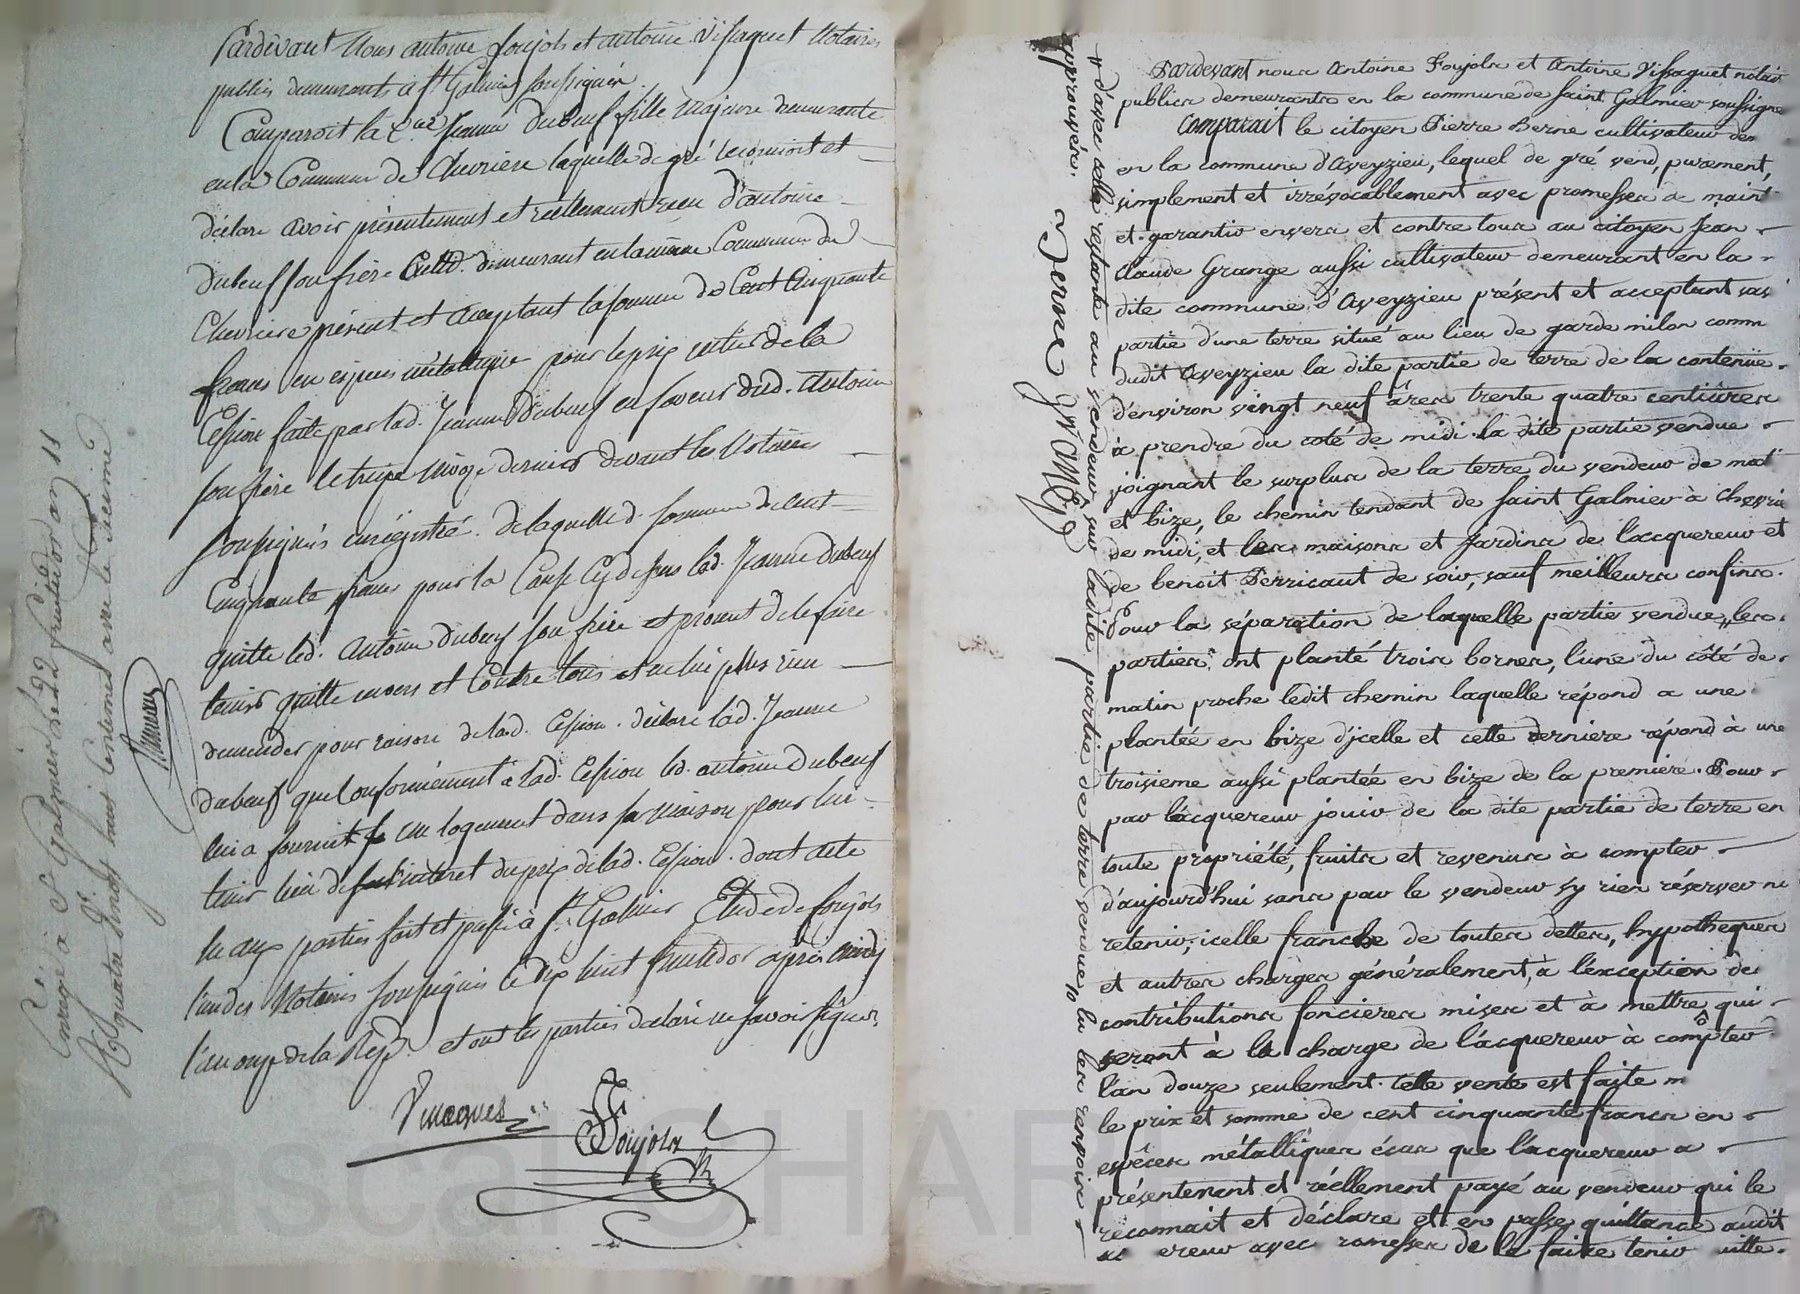 Pardevant Nous antoine foujols et antoine Vissaguet Notaires
publics demeurants à St Galmier soussignés
Comparoit la Cne Jeanne Dubeuf fille majeure demeurante
en la Commune de Chevriere laquelle de gré reconnoit et
déclare avoir présentement et réellement reçu d'antoine
Dubeuf son frère demeurant en la même Commune de
Chevriere présent et acceptant la somme de Cent Cinquante
francs en espèces métallique pour le prix entier de la
Cession faite par lad. Jeanne Dubeuf en faveur dud. Antoine
son frère le treize nivoze dernier devant les Notaires
soussignés enrégistré. de laquelle d. somme de cent
Cinquante francs pour la Cause Cy dessus lad. Jeanne Dubeuf
quitte led. Antoine Dubeuf son frère et promet de le faire
tenir quitte envers et Contre tous et ne lui plus rien
demender pour raison de lad. Cession. déclare lad. Jeanne
Dubeuf que Conformément à lad. Cession led. antoine Dubeuf
lui a fournit un logement dans sa maison pour lui
tenir lieu de l'intéret du prix de lad. Cession. dont acte
lu aux parties fait et passé à St Galmier Etude de foujols
l'un des Notaires soussignés le dix huit fructidor après midy
l'an onze de la Rep. et ont les parties déclaré ne savoir signer.
Foujols
Enregé à St Galmier le 22 fructidor an 11
Pardevant nous Antoine Foujols et Antoine Vissaguet notair
publics demeurants en la commune de saint Galmier soussigné
Comparait le citoyen Pierre Berne cultivateur dem
en la commune d'Aveyzieu, lequel de gré vend, purement,
simplement et irrévocablement avec promesses de maint
et garantir envers et contre tous au citoyen Jean
Claude Grange aussi cultivateur demeurant en la
dite commune d'Aveyzieu présent et acceptant savʳ
partie d'une terre situé au lieu de garde milon comm
dudit Aveyzieu la dite partie de terre de la contenüe
d'environ vingt neuf ares trente quatre centiares
à prendre du coté de midi. la dite partie vendue
joignant le surplus de la terre du vendeur de matⁱ
et bize, le chemin tendant de saint Galmier à Chevrie
de midi, et les maisons et Jardins de l'acquereur et
de benoit Perricaut de soir, sauf meilleurs confins.
Pour la séparation de laquelle partie vendue, les
parties ont planté trois bornes, l'une du côté de
matin proche ledit chemin laquelle répond a une
plantée en bize d'icelle et cette derniere répond à une
troisieme aussi plantée en bize de la premiere. Pour
par l'acquereur jouir de la dite partie de terre en
toute propriété, fruits et revenus à compter
d'aujourd'hui sans par le vendeur sy rien réserver ni
retenir, icelle franche de toutes dettes, hypotheques
et autres charges généralement, à l'exception de
contributions foncieres mises et à mettre qui
seront à la charge de l'acquereur à compter
l'an douze seulement. Cette vente est faite m
le prix et somme de cent cinquante francs en
espèces métalliques écus que l'acquereur a
présentement et réellement payé au vendeur qui le
reconnait et déclare et en passe quittance audit
ac ereur avec romesses de le faire tenir uitte.
d'avec celle restante au vendeur sur ladite partie de terre vendue lu les renvoirs
approuvés.
Berne grange